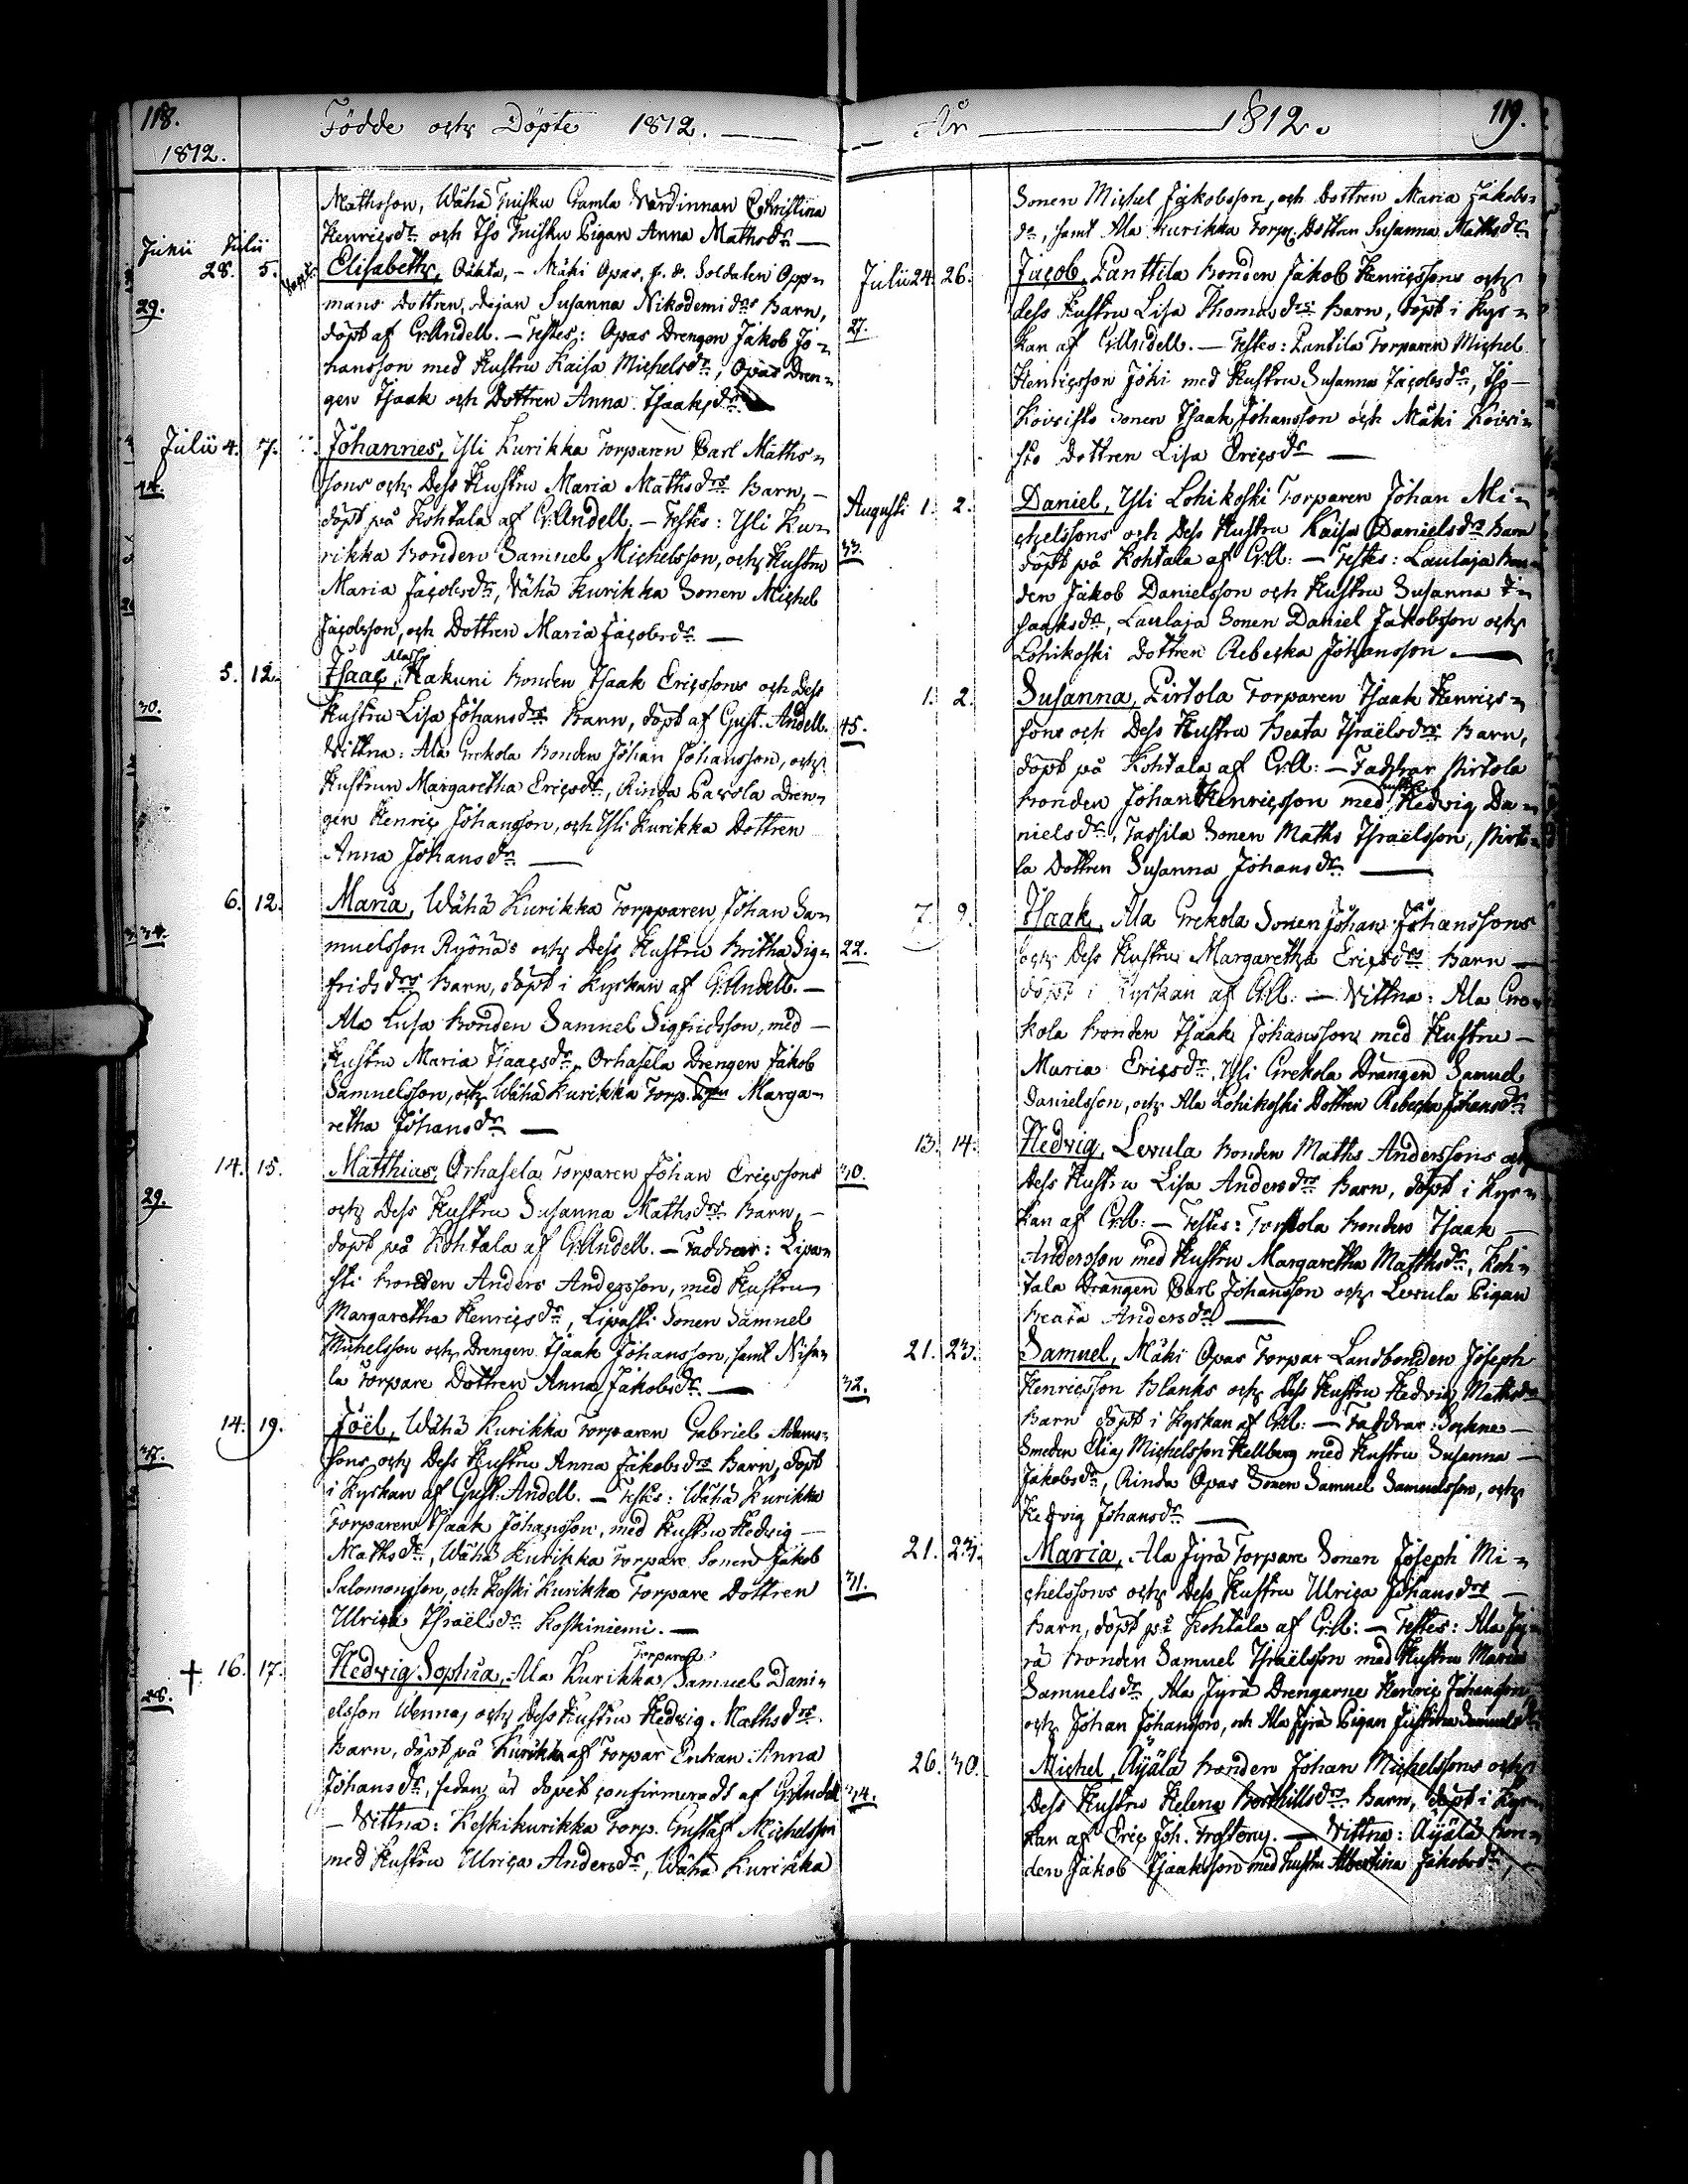 118.
1812.
Födde och Döpte 1812.
Mathsson, Wähä Tuisku Gamla Värdinnan Christina
Henricsdr och Iso Tuisku Pigan Anna Mathsdr —
Junii Julii
28. 5. Elisabeth, Oäkta, – Mäki Opas, f. d. Soldaten Opp-
29. mans Dottren, Dejan Susanna Nikodemi drs Barn,
döpt af G: Andell. – Testes: Opas Drengen Jakob Jo-
hansson med Hustru Kaisa Michelsdr, Opas Dren-
gen Isaak och Dottren Anna Isaaksdr
Julii 4. 7. Johannes, Yli Kurikka Torparen Carl Maths-
44. sons och Dess Hustru Maria Mathsdrs Barn, –
döpt på Kohtala af G: Andell. – Testes: Yli Ku-
rikka Bonden Samuel Michelsson, och Hustru
Maria Jacobsdr, Vähä Kurikka Sonen Michel
Jacobsson, och Dottren Maria Jacobsdr —
5. 12. Isaac, Hakuni Bonden Isaak Ericssons och Dess
30. Hustru Lisa Johansdrs Barn, döpt af Gust. Andell.
Vittna: Ala Grekola Bonden Johan Johansson, och
Hustrun Margaretha Ericsdr, Rinda Panula Dren-
gen Henric Johansson, och Yli Kurikka Dottren
Anna Johansdr —
6. 12. Maria, Wähä Kurikka Torpparen Johan Sa-
34. muelsson Ryönäs och Dess Hustru Britha Sig-
fridsdrs Barn, döpt i Kyrkan af G: Andell. –
Ala Lusa Bonden Samuel Sigfridsson, med –
Hustru Maria Isaacsdr, Orhasela Drengen Jakob
Samuelsson, och Wähä Kurikka Torp. Pigan Marga-
retha Johansdr —
14. 15. Matthias, Orhasela Torparen Johan Ericssons
29. och Dess Hustru Susanna Mathsdrs Barn, –
döpt på Kohtala af G: Andell. – Faddrar: Lipas-
sti Bonden Anders Andersson, med Hustru
Margaretha Henricsdr, Lipasti Sonen Samuel
Michelsson och Drengen Isaak Johansson, samt Nisu-
la Torpare Dottren Anna Jakobsdr —
14. 19. Joël, Wähä Kurikka Torparen Gabriel Adams-
37. sons och Dess Hustru Anna Jakobsdrs Barn, döpt
i Kyrkan af Gust. Andell. – Testes: Wähä Kurikka
Torparen Isaak Johansson, med Hustru Hedvig –
Mathsdr, Wähä Kurikka Torpare Sonen Jakob
Salomonsson, och Koski Kurikka Torpare Dottren
Ulrica Israëlsdr Koskiniemi. —
Torparen
† 16. 17. Hedvig Sophia, Ala Kurikka Samuel Dani-
28. elsson Wenna, och Dess Hustru Hedvig Mathsdrs
Barn, döpt på Kurikka af Torpar Enkan Anna
Johansdr, sedan är dopet confirmeradt af G: Andell
– Vittna: Keskikurikka Torp. Gustaf Michelsson
med Hustru Ulrica Andersdr, Wähä Kurikka
År 1812. 119.
Sonen Michel Jakobsson, och Dottren Maria Jakobs-
dr, samt Ala Kurikka Torp. Dottren Susanna Mathsdr
Julii 24. 26. Jacob, Panttila Bonden Jakob Henricssons och
27. dess Hustru Lisa Thomædrs Barn, döpt i Kyr-
kan af G: Andell. – Testes: Pantila Torparen Michel
Henricsson Joki med Hustru Susanna Jacobsdr, Iso –
Koivisto Sonen Isaak Johansson och Mäki Koivi-
sto Dottren Lisa Ericsdr —
Augusti 1. 2. Daniel, Yli Lohikoski Torparen Johan Mi-
33. chelssons och Dess Hustru Kaisa Danielsdrs Barn
döpt på Kohtala af G: A: – Testes: Laulaja Bon-
den Jakob Danielsson och Hustru Susanna I-
saaksdr, Laulaja Sonen Daniel Jakobsson och
Lohikoski Dottren Rebecka Johansson —
1. 2. Susanna, Pirtola Torparen Isaak Henrics-
45. sons och Dess Hustru Beata Israëlsdrs Barn,
döpt på Kohtala af G: A: – Faddrar Pirtola
Bonden Johan Henricsson med Hustru Hedvig Da-
nielsdr, Tassila Sonen Maths Israëlsson, Pirto-
la Dottren Susanna Johansdr —
7. 9. Isaak, Ala Grekola Sonen Johan Johanssons
22. och Dess Hustru Margaretha Ericsdrs Barn –
döpt i Kyrkan af G: A: – Vittna: Ala Gre-
kola Bonden Isaak Johansson med Hustru –
Maria Ericsdr, Yli Grekola Drängen Samuel
Danielsson, och Ala Lohikoski Dottren Rebecka Johansdr
13. 14. Hedvig, Levula Bonden Maths Anderssons och
30. Dess Hustru Lisa Andersdrs Barn, döpt i Kyr-
kan af G: A: – Testes: Torkola Bonden Isaak –
Andersson med Hustru Margaretha Mathsdr, Koh-
tala Drängen Carl Johansson och Levula Pigan
Beata Andersdr —
21. 23. Samuel, Mäki Opas Torpar Landbonden Joseph
32. Henricsson Blanks och Dess Hustru Hedvig Mathsdrs
Barn döpt i Kyrkan af G: A: – Faddrar: Sockne –
Smeden Elias Michelsson Hellberg med Hustru Susanna –
Jakobsdr, Rinda Opas Sonen Samuel Samuelsson, och
Hedvig Johansdr —
21. 23. Maria, Ala Jyrä Torpare Sonen Joseph Mi-
31. chelssons och Dess Hustru Ulrica Johansdrs –
Barn, döpt på Kohtala af G: A: – Testes: Ala Jy-
rä Bonden Samuel Israëlsson med Hustru Maria
Samuelsdr, Ala Jyrä Drengarne Henric Johansson
och Johan Johansson, och Ala Jyrä Pigan Justina Samuelsdr
26. 30. Michel, Äyälä Bonden Johan Michelssons och
34. Dess Hustru Helena Berthillsdrs Barn, döpt i Kyr-
kan af Eric Joh. Frosterus. – Vittna: Äyälä Bon-
den Jakob Isaaksson med Hustru Albertina Jakobsdr,